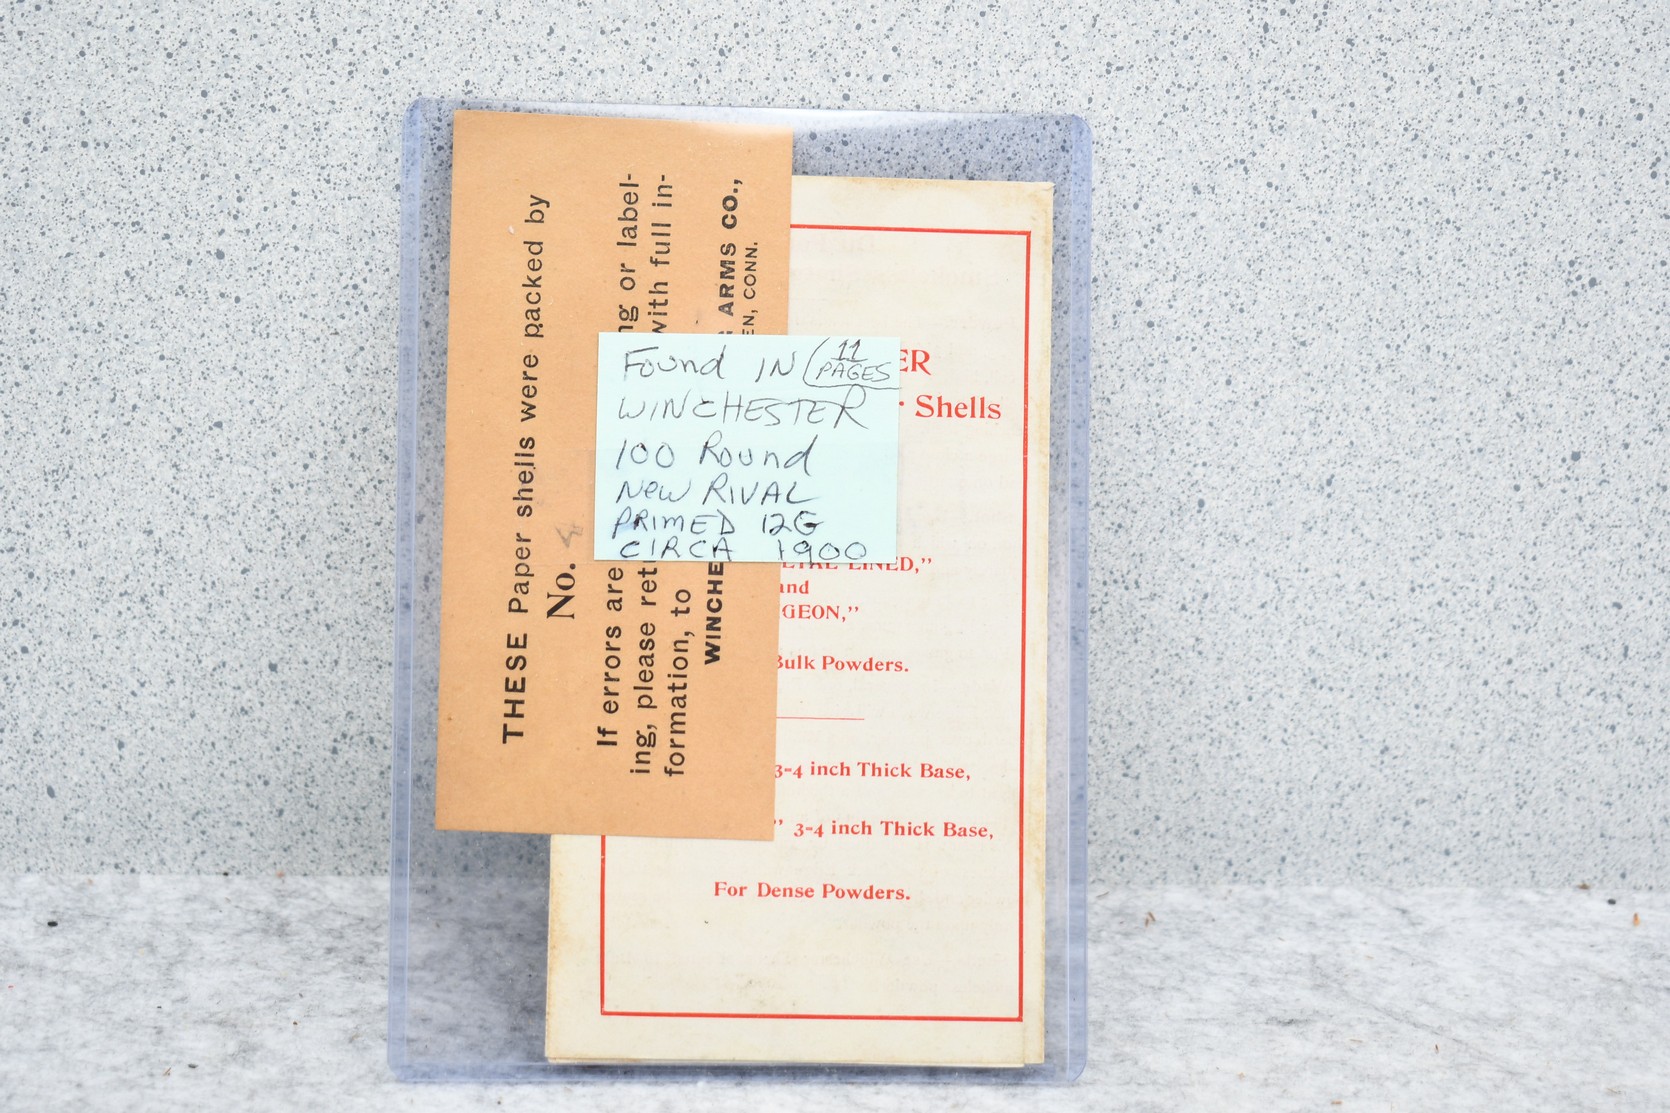 THESE Paper shells were packed by
No. 8
If errors are ng or label-
ing, please ret with full in-
formation, to
WINCHE G ARMS CO.,
EN, CONN.
Found IN (11 PAGES
WINCHESTER
100 Round
New RIVAL
PRIMED 12G
CIRCA 1900
ER
r Shells
ETAL LINED,"
and
GEON,"
Bulk Powders.
3-4 inch Thick Base,
" 3-4 inch Thick Base,
For Dense Powders.